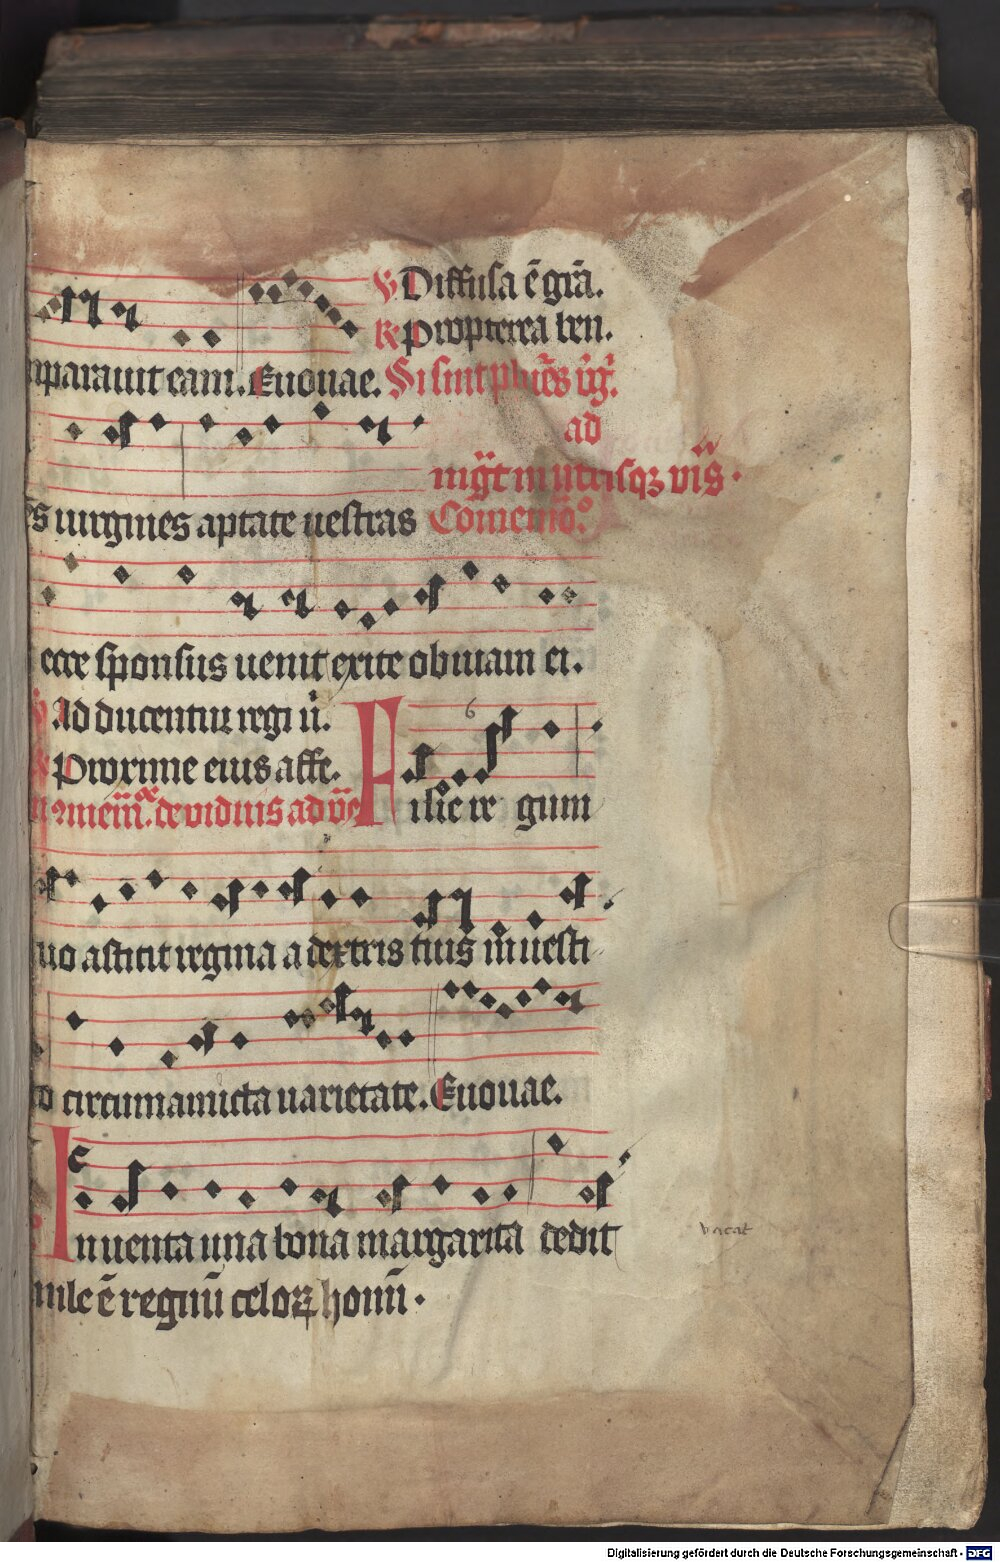 ℣ Diffusa ē grā.
℟ Propterea ben.
parauit eam. Euouae. Si sint
ad
Conmemō.
es uirgines aptate uestras
ecce sponsus uenit exite obuiam ei.
Adducentur regi ú.
Proxime eius affe.
de viduis ad
Filie regum
uo astitit regina a dextris tuis in uesti-
o circumamicta uarietate. Euouae.
Inuenta una bona margarita dedit
mile ē regnū celoꝝ homī.
vacat
Digitalisierung gefördert durch die Deutsche Forschungsgemeinschaft - DFG